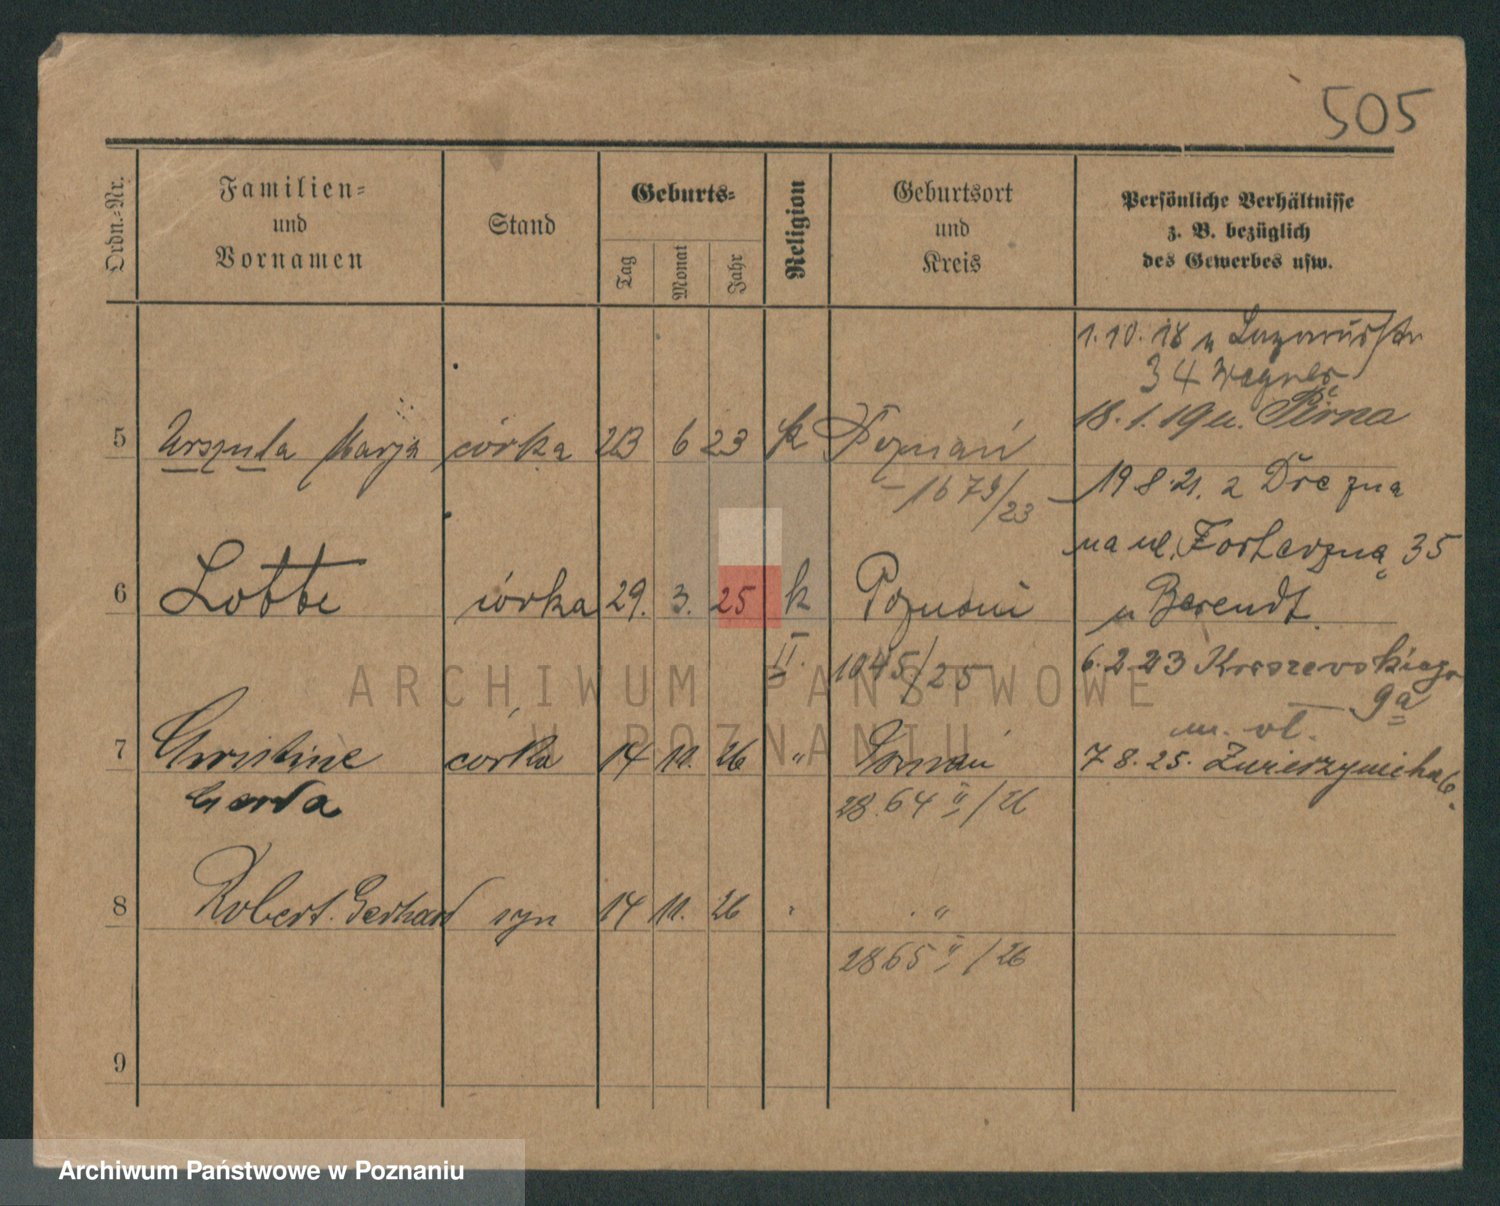 505
Ordn.-Nr.
Familien- und Vornamen
Stand
Geburts-
Tag
Monat
Jahr
Religion
Geburtsort und Kreis
Persönliche Verhältnisse
z. B. bezüglich
des Gewerbes usw.
1.10.18 n Lazarusstr
34 Wagner
18.1.19 u. Pirna
5 Urszula Marja córka 23 6 23 k Poznań
1679/23
19 8.21. z Drezna
na ul. Forteczną 35
u Berendt.
6 Lotte córka 29. 3. 25 k Poznań
II. 1045/25
6.2 23 Kraszewskiego
9a
m. ot.
7 Christine córka 14 10. 26 " Poznań
7 8.25. Zwierzyniecka 6.
Gerda
2864 II/26
8 Robert Gerhard syn 14 10. 26 " "
2865 II/26
9
ARCHIWUM PAŃSTWOWE
W POZNANIU
Archiwum Państwowe w Poznaniu